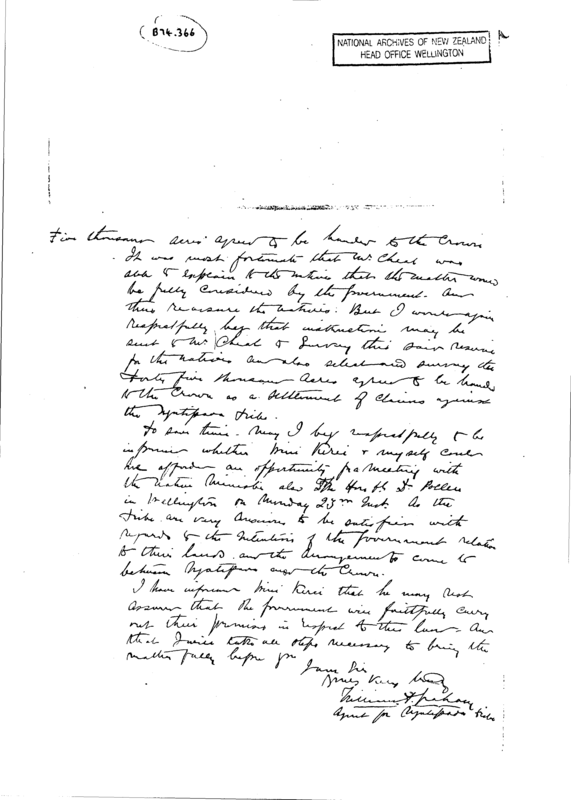 B74.366
NATIONAL ARCHIVES OF NEW ZEALAND
HEAD OFFICE WELLINGTON
Five thousand acres agreed to be handed to the Crown
It was most fortunate that Mr Cheal was
able to explain to the natives that the matter would
be fully considered by the Government. and
thus reassure the natives. But I would again
respectfully beg that instructions may be
sent to Mr Cheal to Survey this said reserve
for the natives and also select and survey the
Forty five thousand acres agreed to be handed
to the Crown as a settlement of claims against
the Ngatipaoa tribe.
To save time. May I beg respectfully to be
informed whether Wini Kerei & myself could
be afforded an opportunity for a meeting with
the Native Minister also The Hon Dr Pollen
in Wellington on Monday 23rd Inst. As the
tribe are very anxious to be satisfied with
regards to the intentions of the Government relation
to their lands and the Arrangements come to
between Ngatipaoa and the Crown.
I have informed Wini Kerei that he may rest
assured that the Government will faithfully carry
out their promises in respect to this land. And
that I will take all steps necessary to bring the
matter fully before you
I am Sir
Yours Very
William Graham
Agent for Ngatipaoa tribe